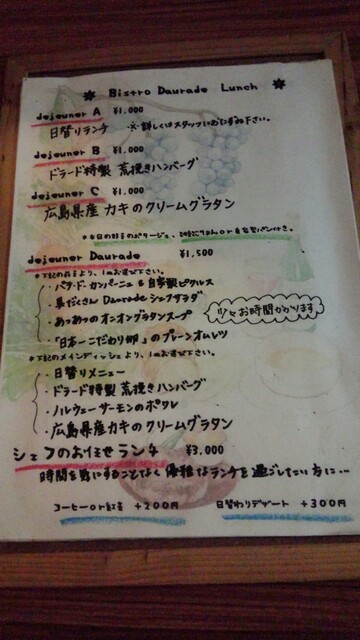 * Bistro Daurade Lunch *
dejeuner A ¥1,000
日替りランチ ※詳しくはスタッフにおたずね下さい。
dejeuner B ¥1,000
ドラード特製 荒挽きハンバーグ
dejeuner C ¥1,000
広島県産カキのクリームグラタン
*本日のお豆のポタージュ、雑穀ごはんor自家製パン付き。
dejeuner Daurade ¥1,500
*下記の前菜より、1つお選び下さい。
・パテ・ド・カンパーニュ&自家製ピクルス
・具だくさん Daurade シェフサラダ
・あつあつのオニオングラタンスープ
少々お時間かかります
・「日本一こだわり卵」のプレーンオムレツ
*下記のメインディッシュより、1つお選び下さい。
・日替りメニュー
・ドラード特製 荒挽きハンバーグ
・ノルウェーサーモンのポワレ
・広島県産カキのクリームグラタン
シェフのお任せランチ ¥3,000
時間を気にすることなく優雅なランチを過ごしたい方に…
コーヒーor紅茶 +200円 日替わりデザート +300円